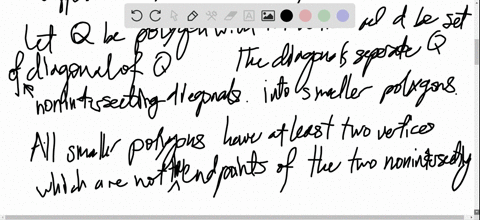 Let Q be polygon with and d be set
of diagonal of Q The diagonals separate Q
nonintersecting diagonals. into smaller polygons.
All smaller polygons have at least two vertices
which are not the endpoints of the two nonintersecting